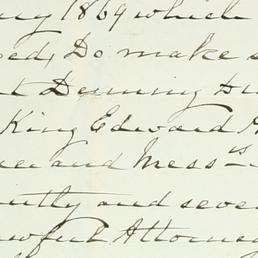 ry 1869 which
ed, Do make
t Denning Du
King Edward
ee and Mess^rs
ntly and seve
wful Attorney